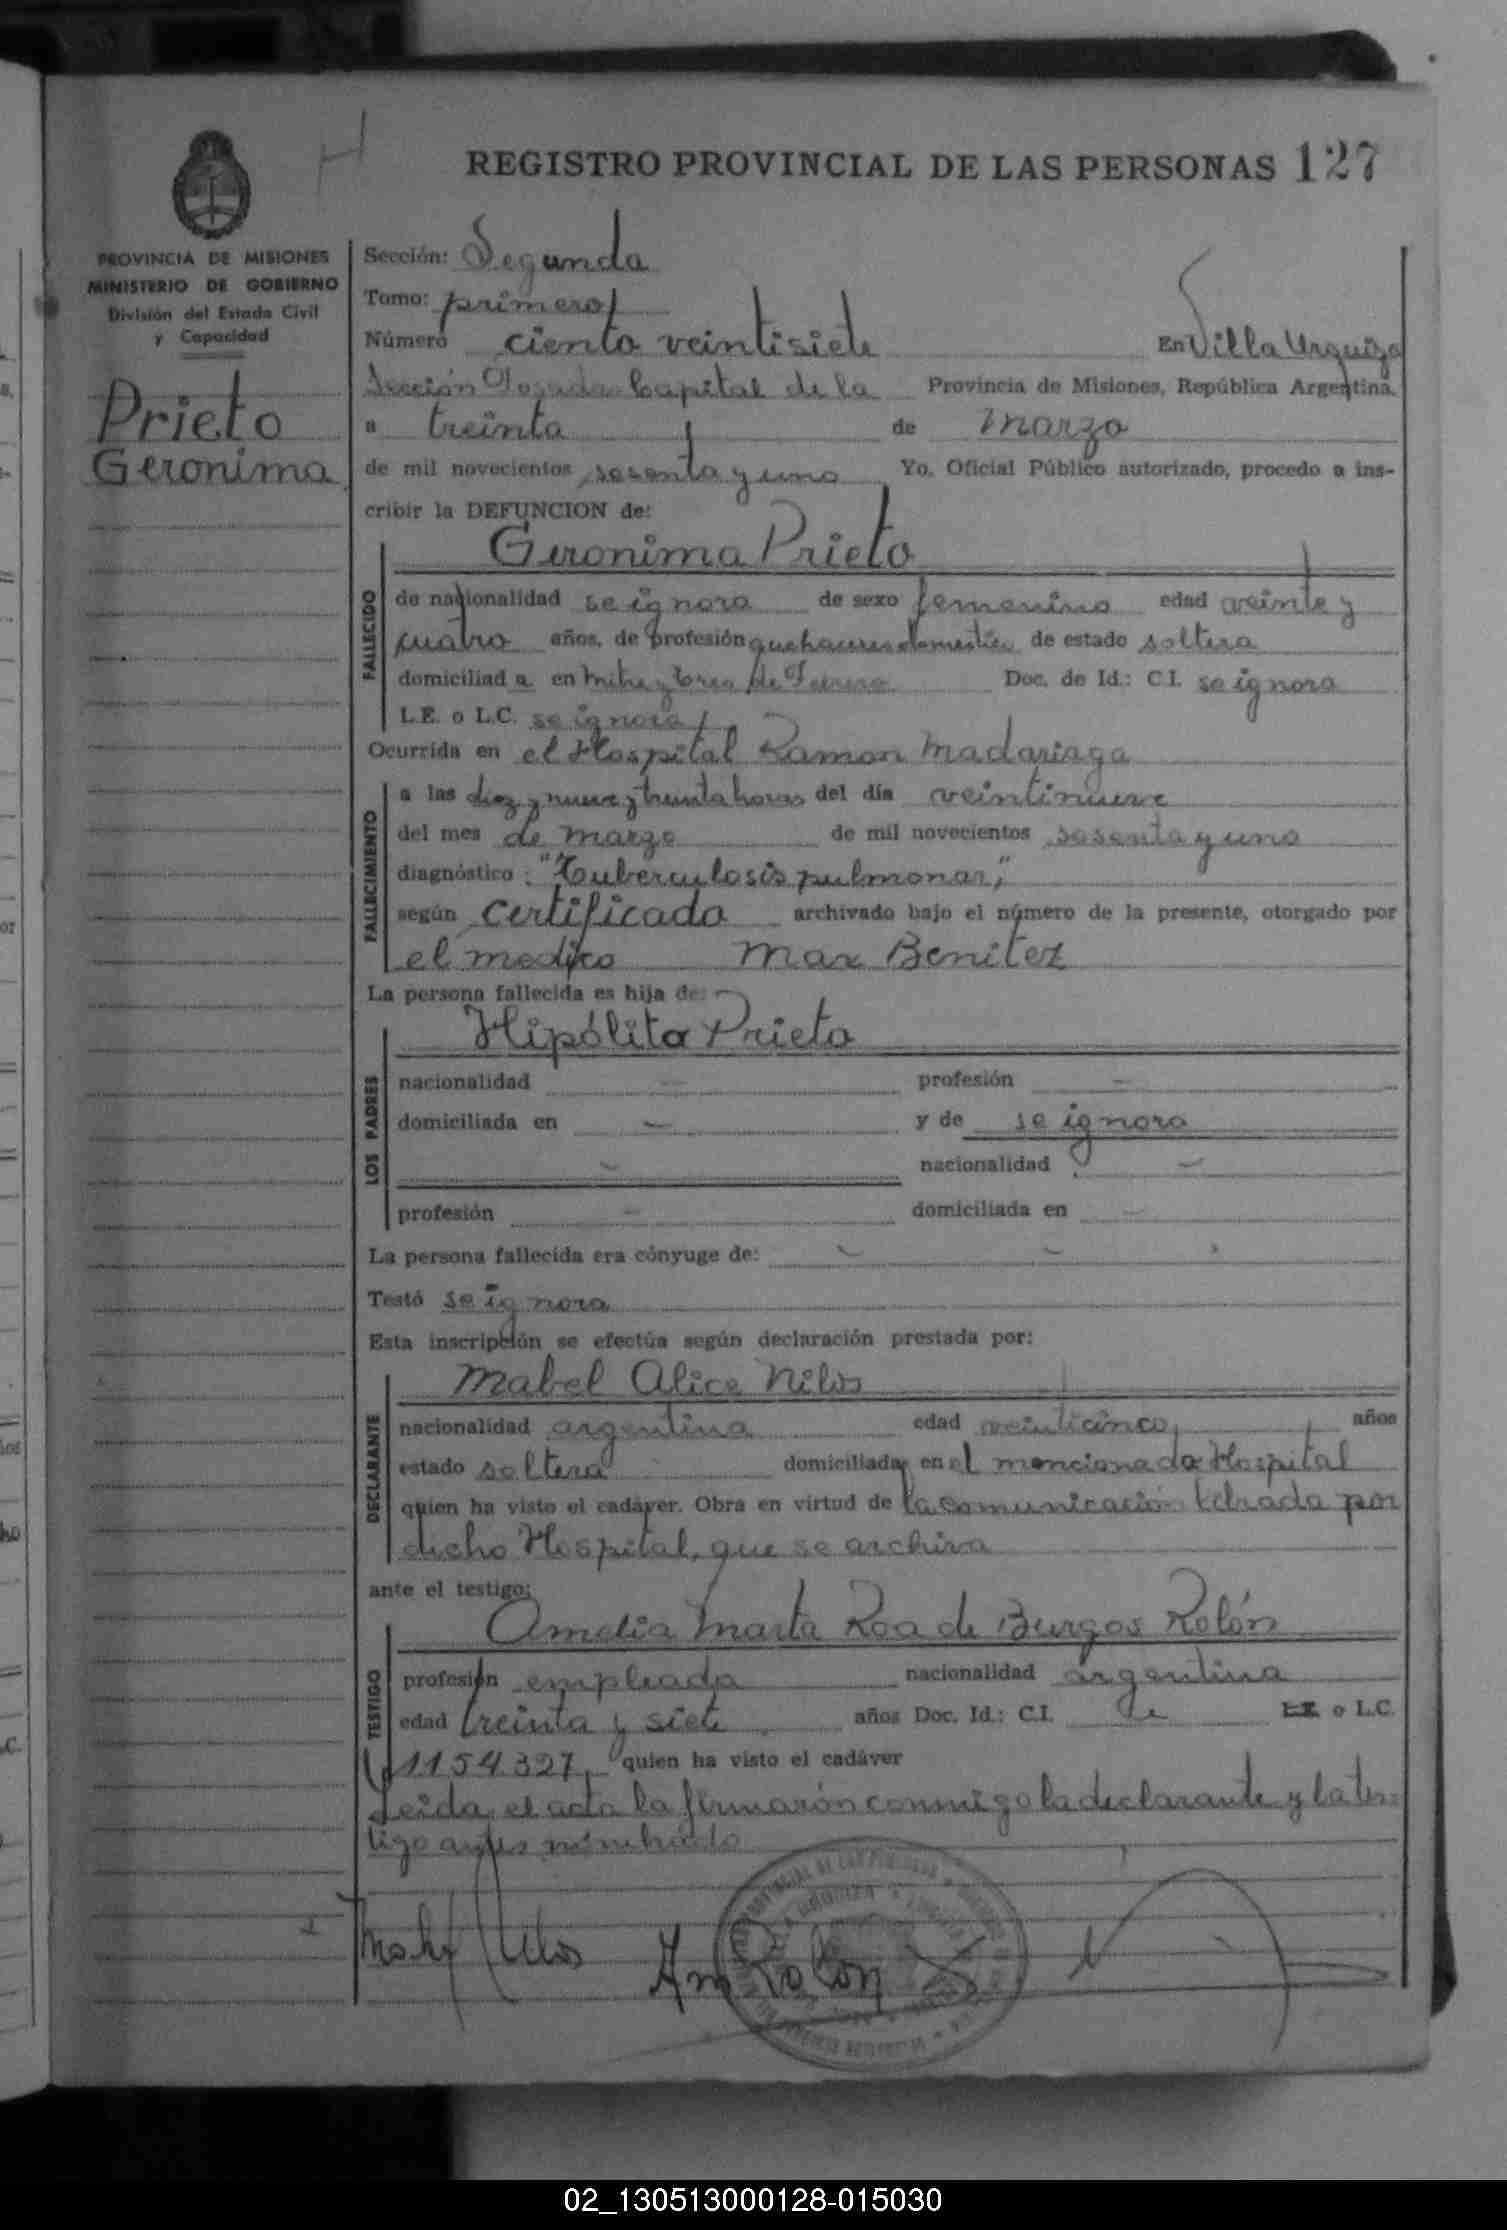 REGISTRO PROVINCIAL DE LAS PERSONAS 127
PROVINCIA DE MISIONES
MINISTERIO DE GOBIERNO
División del Estado Civil
y Capacidad
Prieto
Geronima
Sección: Segunda
Tomo: primero
Número ciento veintisiete En Villa Urquiza
Sección Posadas Capital de la Provincia de Misiones, República Argentina.
a treinta de Marzo
de mil novecientos sesenta y uno Yo, Oficial Público autorizado, procedo a ins-
cribir la DEFUNCION de:
Geronima Prieto
FALLECIDO
de nacionalidad se ignora de sexo femenino edad veinte y
cuatro años, de profesión quehaceres domestico de estado soltera
domiciliad a en Mitre y tres de Febrero Doc. de Id.: C.I. se ignora
L.E. o L.C. se ignora
Ocurrida en el Hospital Ramon Madariaga
FALLECIMIENTO
a las diez y nueve y treinta horas del día veintinueve
del mes de Marzo de mil novecientos sesenta y uno
diagnóstico : "Tuberculosis pulmonar,"
según certificado archivado bajo el número de la presente, otorgado por
el medico Max Benitez
La persona fallecida es hija de:
Hipólita Prieto
LOS PADRES
nacionalidad - profesión -
domiciliada en - y de se ignora
- nacionalidad -
profesión - domiciliada en -
La persona fallecida era cónyuge de: - -
Testó se ignora
Esta inscripción se efectúa según declaración prestada por:
Mabel Alice Nilos
DECLARANTE
nacionalidad argentina edad veinticinco años
estado soltera domiciliada en el mencionado Hospital
quien ha visto el cadáver. Obra en virtud de la comunicación librada por
dicho Hospital, que se archiva
ante el testigo:
Amelia Marta Roa de Burgos Rolón
TESTIGO
profesión empleada nacionalidad argentina
edad treinta y siete años Doc. Id.: C.I. de L.E. o L.C.
1154.327, quien ha visto el cadáver
Leida el acta la firmarón conmigo la declarante y la tes-
tigo antes nombrado
Am Rolón
02_130513000128-015030